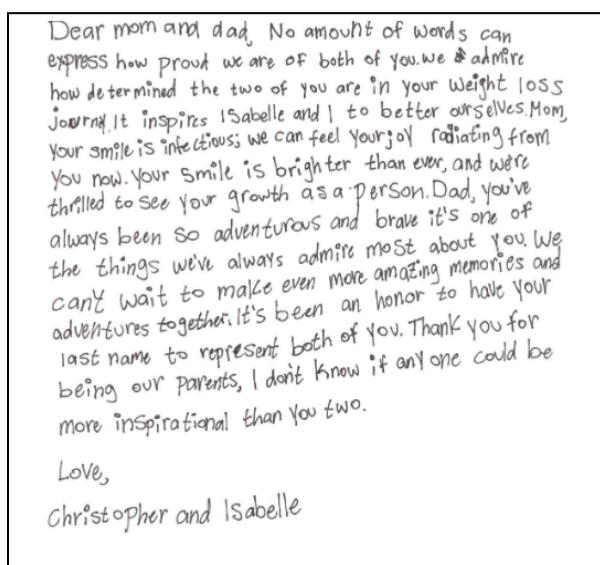 Dear mom and dad, No amount of words can
express how proud we are of both of you. we admire
how determined the two of you are in your weight loss
journy. It inspires ISabelle and I to better ourselves. Mom,
your smile is infectious; we can feel your joy radiating from
you now. Your smile is brighter than ever, and we're
thrilled to see your growth as a person. Dad, you've
always been so adventurous and brave it's one of
the things we've always admire most about you. We
can't wait to make even more amazing memories and
adventures together. It's been an honor to have your
last name to represent both of you. Thank you for
being our parents, I don't know if any one could be
more inspirational than you two.
Love,
Christopher and ISabelle